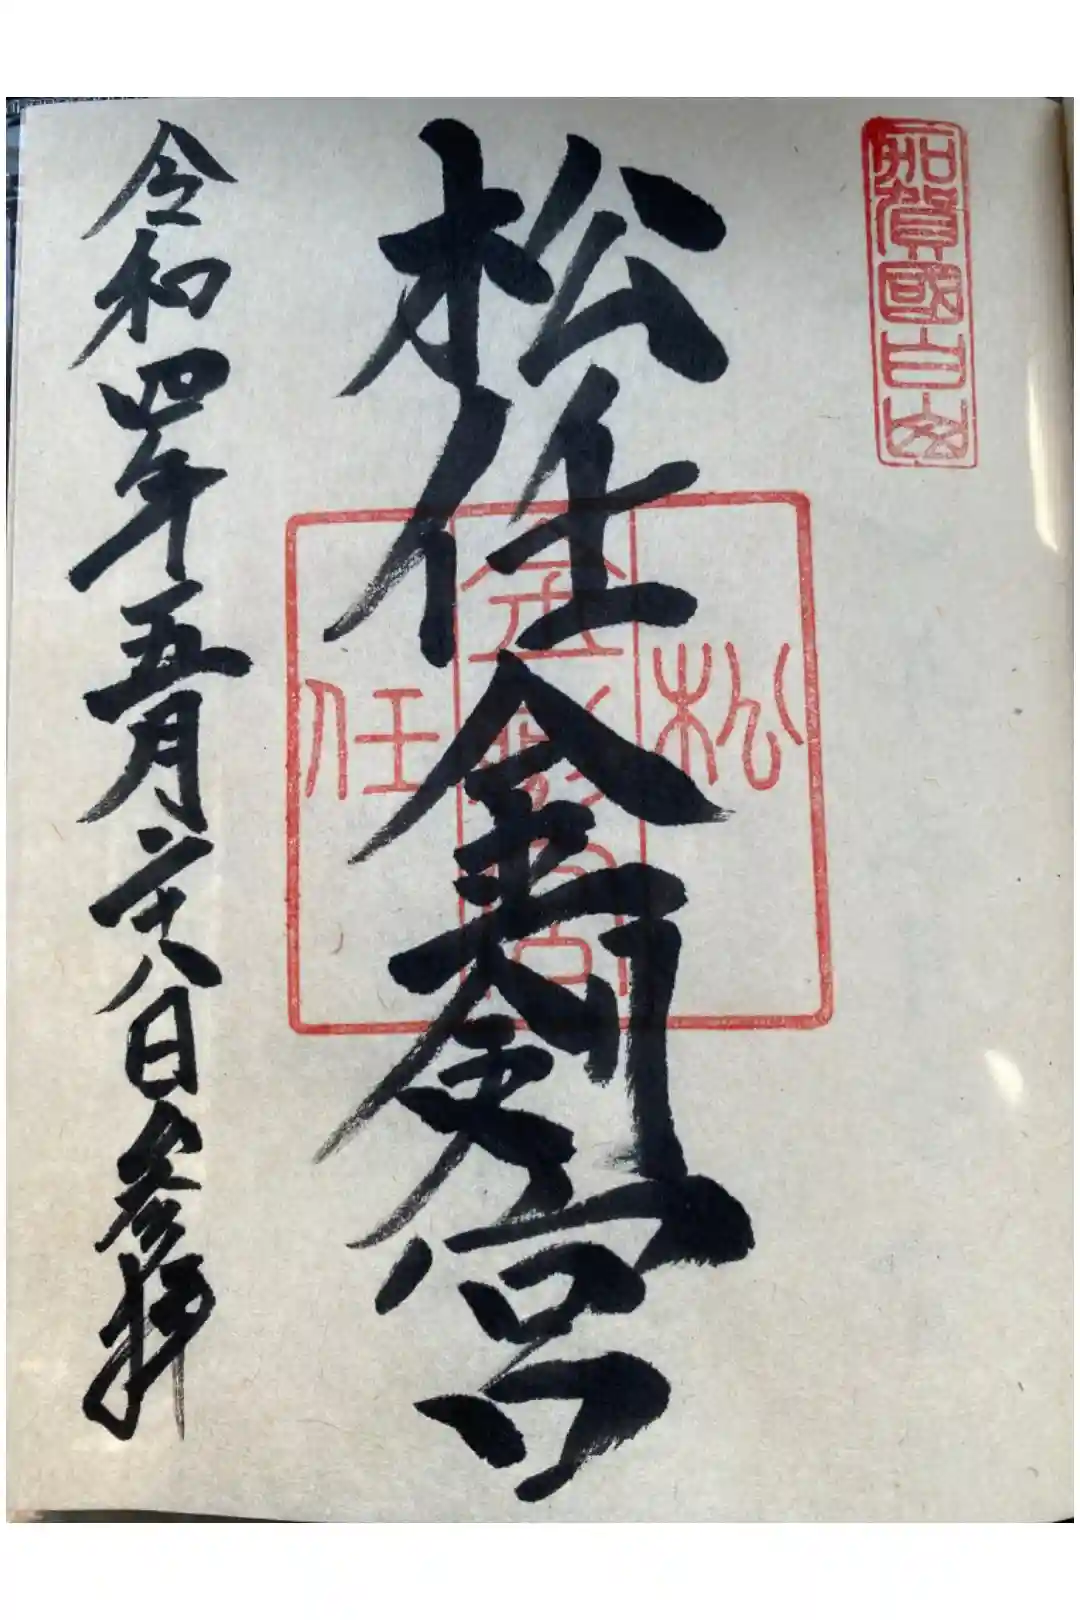 加賀國白山
松任金剱宮
松
金剱宮
任
令和四年五月二十八日参拝